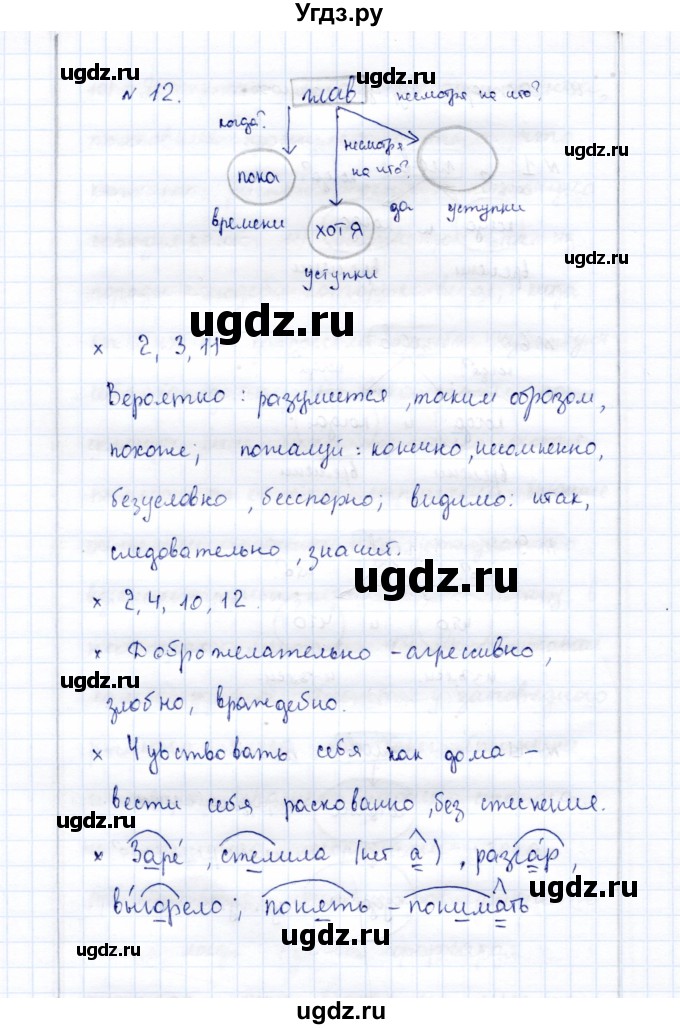 Угдз.ру
ugdz.ru
ugdz.ru
ugdz.ru
N 12. глав. несмотря на что?
когда?
несмотря
на что?
ugdz.ru
пока
времени
хотя
да уступки
уступки
ugdz.ru
ugdz.ru
ugdz.ru
× 2, 3, 11
Вероятно: разумеется, таким образом,
похоже; пожалуй: конечно, несомненно,
безусловно, бесспорно; видимо: итак,
следовательно, значит.
ugdz.ru
× 2, 4, 10, 12.
× Доброжелательно - агрессивно,
ugdz.ru
злобно, враждебно.
× Чувствовать себя как дома -
вести себя раскованно, без стеснения.
ugdz.ru
× Заре́, стелила (нет а), разга́р,
ugdz.ru
вы́горело; понять - понимать
ugdz.ru
ugdz.ru
ugdz.ru